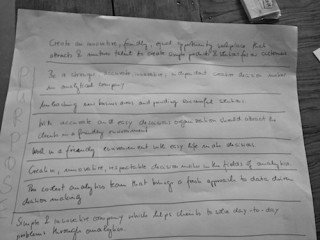 Create an innovative, friendly, equal opportunity workplace that
attracts & nurtures talent to create simple products & choices for our customers
Be a strong, accurate innovative, independent creative decision maker
in analytical company
new business areas and providing successful
With accurate and easy decisions organization should about the
clients in a friendly environment
Work in a friendly environment with easy life in the decision
Creative, innovative, respectable decision maker in the fields of analytics.
The coolest analytics team that brings a fresh approach to data driven
decision making
Simple & innovative company which helps clients to solve day-to-day
problems through analytics.
PURPOSE